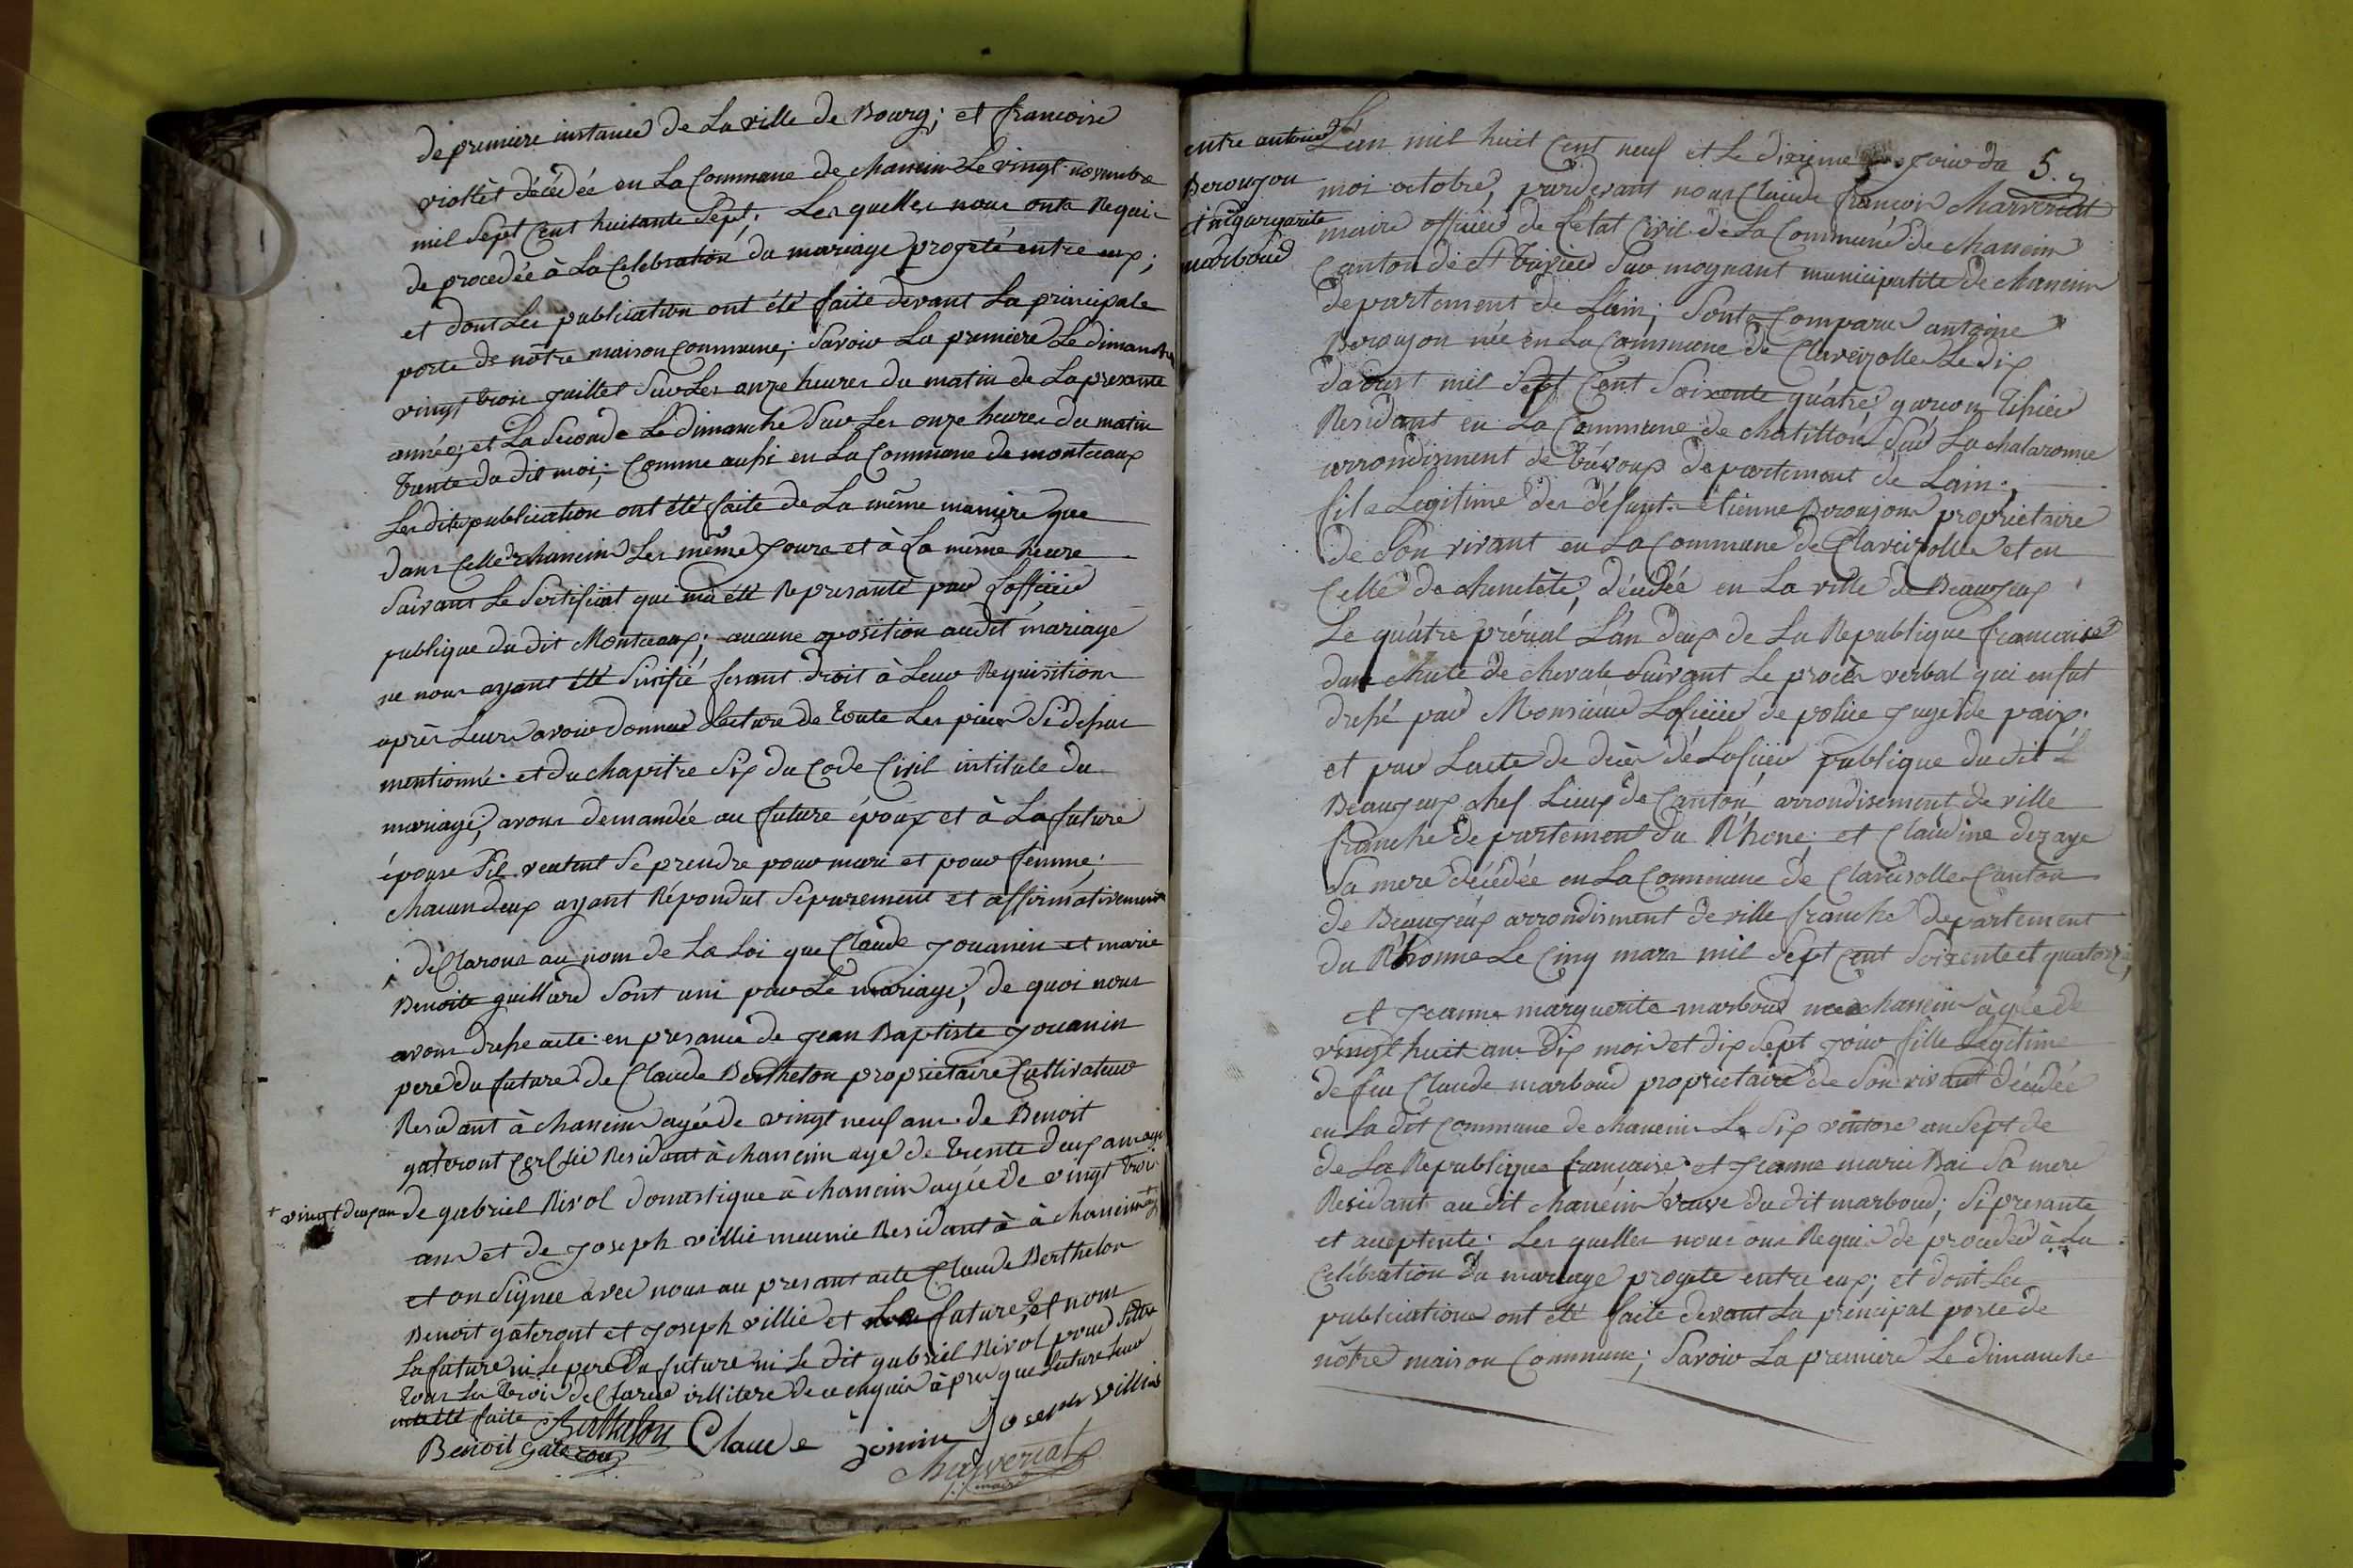 de premiere instance de La ville de Bourg; et francoise
viottet décédée en La Commune de chanein Le vingt novembre
mil Sept Cent huitante Sept; Les quelles nous onts Requis
de procedée à La Celebration du mariage progeté entre eux;
et dont Les publication ont été faite devant La principale
porte de nôtre maison Commune; Savoir La premiere Le dimanche
vingt trois juillet Sur Les onze heures du matin de La presante
année; et La Seconde Le dimanche Sur Les onze heures du matin
trente du dit moi; Comme aussi en La Commune de montceaux
Les dite publication ont été faite de La même manière que
dans Celle de chanein Les même Jours et à La même heure
Suivant Le Sertificat que ma été Represanté par Lofficier
publique du dit Montceaux; aucune oposition audit mariage
ne nous ayant été Sinifié fesant droit à Leur Requisition
après Leurs avoir donnée Lecture de toute Les pieces Si dessus
mentionné et du chapitre Six du Code Civil intitule du
mariage; avons demandée au future époux et à La future
épouse Sil veulent Se prendre pour mari et pour femme;
chacun deux ayant Répondut Séparement et affirmativement
; déClarons au nom de La Loi que Claude Jouanin et marie
Benoite guillard Sont uni par Le mariage; de quoi nous
avons dressé acte en presance de Jean Baptiste Jouanin
pere du future de Claude Berthelon proprietaire Cultivateur
Residant à chanein agée de vingt neuf ans de Benoit
gateront Residant à chanein agé de trente deux ans
+ vingt deux ans
de gabriel Rivol domestique à chanein agée de vingt trois
ans et de Joseph villié meunie Residant à chanein
et on Signee avec nous au presant acte Claude Berthelon
Benoit gateront et Joseph villié et future, et nom
La future ni Le pere du future ni Le dit gabriel Rivol pour
tous Les trois deClarée illitere de ce enquis à pres que Lecture Leur
été faite Berthelon Claude Jonnin Joseph villié
Benoit Gateron
Charveriat
maire
entre antoine
Beroujon
et marguerite
marboud
5.
Lan mil huit Cent neuf et Le dixieme Jour du
moi octobre, pardevant nous Claude francois Charveriat
maire officier de Letat Civil de La Commune de chanein
Canton de St Trivier Sur mognant municipatite de chanein
departement de Lain; Sont Comparu antoine
Beroujon née en La Commune de Claveizolles Le dix
daoust mil Sept Cent Soixente quátre garcon tissier
Residant en La Commune de chatillon Sur La chalaronne
arrondisment de trévoux departement de Lain;
fils Legitime des défunts etienne Beroujon proprietaire
de Son vivant en La Commune de Claveizolles et en
Celle de chenelète, décédée en La ville de Beaujeux
Le quátre prérial Lán deux de La Republique francaise
dune chute de chevale Suivant Le procès verbal qui en fut
dressé par Monsieur Loficier de police Juge de paix
et par Lacte de décès de Loficier publique du dit
Beaujeux chef Lieux de Canton arrondisement de ville
franche departement du Rhone; et Claudine dezaye
Sa mere décédée en La Commune de Claveisolles Canton
de Beaujeux arrondisment de ville franche departement
du Rhonne Le Cinq mars mil Sept Cent Soixente et quatorze;
et Jeanne marguerite marboud née à chanein àgée de
vingt huit ans dix mois et dix Sept Jour fille Legitime
de feu Claude marboud proprietaire de Son vivant décédée
en La dit Commune de chanein Le Six ventose an Sept de
de La Republique francaise et Jeanne marie Bai Sa mere
Residant au dit chanein veuve du dit marboud; Si presante
et aceptente; Les quelles nous ons Requis de proceder à La
Celebration du mariage progete entre eux; et dont Les
publications ont été faite devant La principal porte de
nôtre maison Commune; Savoir La premiere Le dimanche